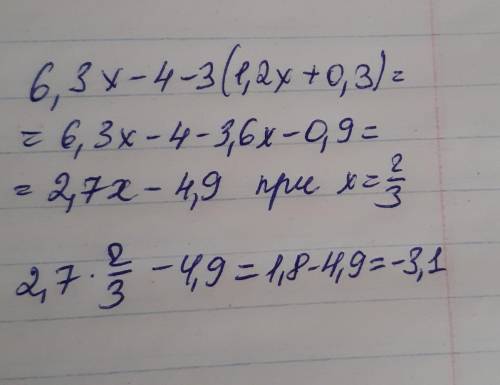 6,3x-4-3(1,2x+0,3)=
=6,3x-4-3,6x-0,9=
=2,7x-4,9 при x=2/3
2,7·2/3-4,9=1,8-4,9=-3,1